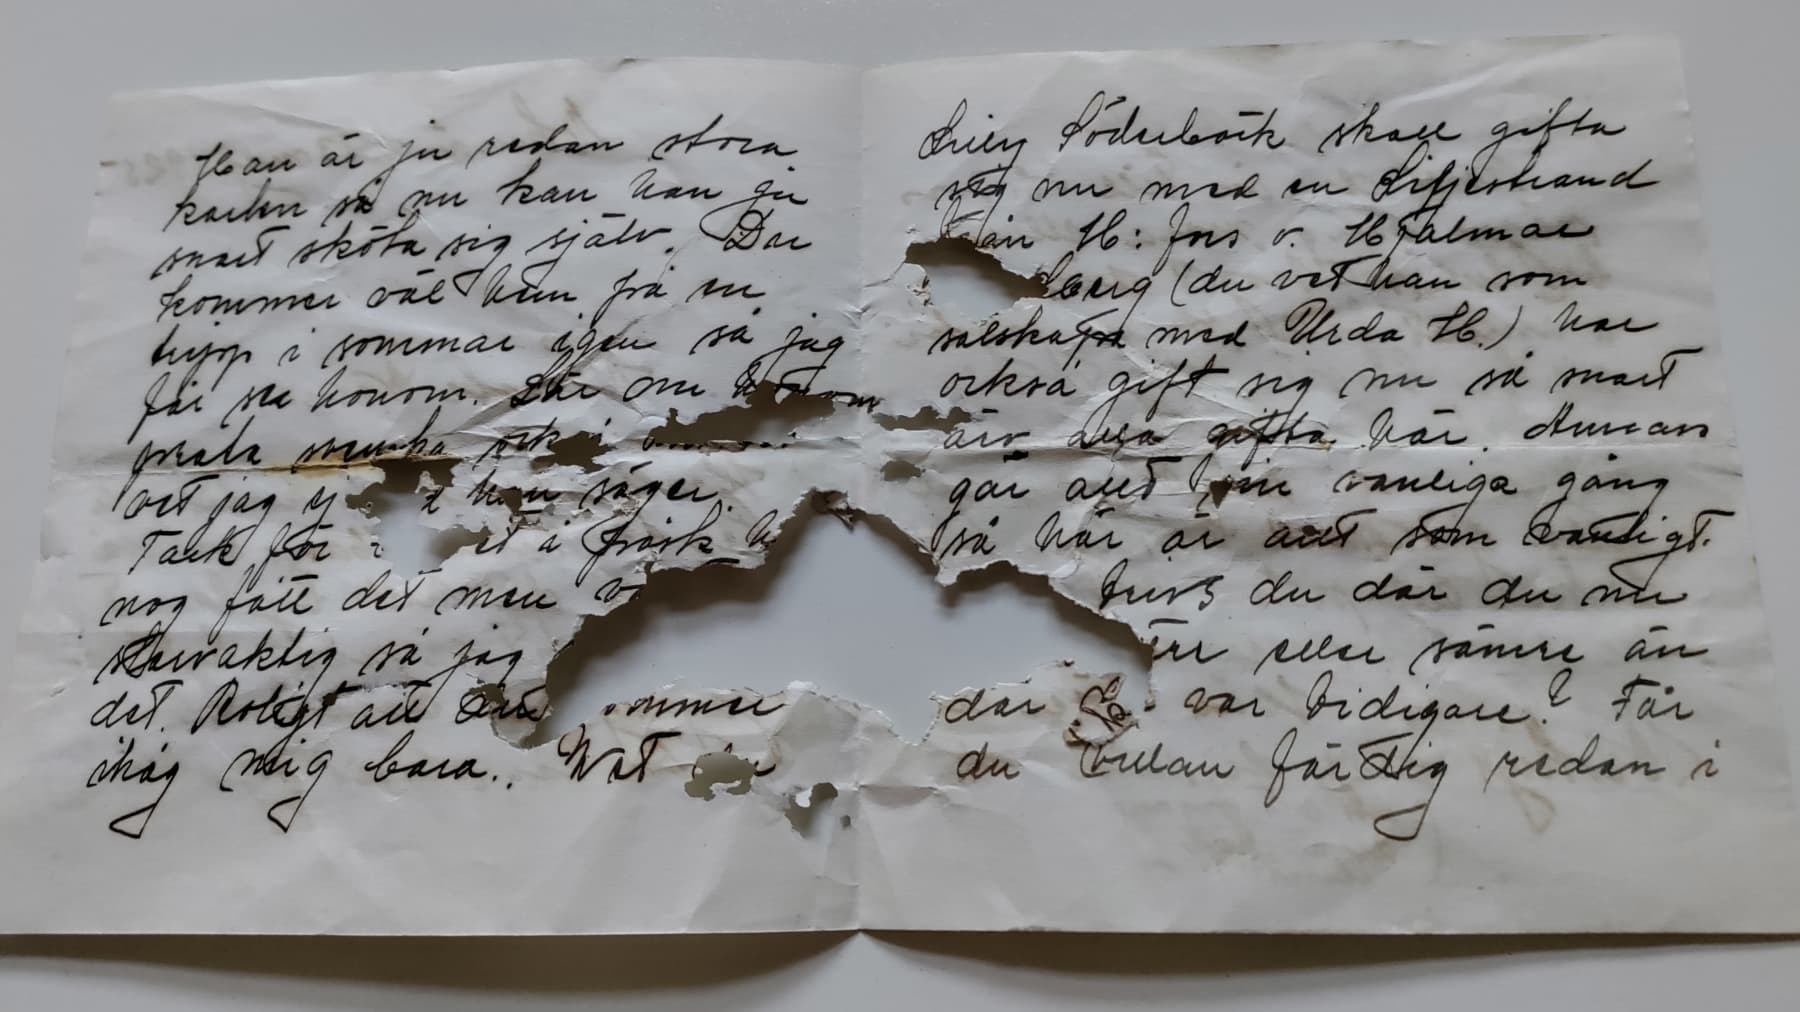 Han är ju redan stora
karlen så nu kan han ju
snart sköta sig själv. Du
kommer väl hem på en
tripp i sommar igen så jag
får se honom. Lär om honom
prata svenska också
vet jag ej han säger.
Tack för
nog fått det men
slarvaktig så jag
det. Roligt att
ihåg mig bara. Vet
Lilly Söderbäck skall gifta
sig nu med en Liljestrand
från H:fors o. Hjalmar
berg (du vet han som
sälskapa med Urda H.) har
också gift sig nu så snart
äro alla gifta här. Annars
går allt sin vanliga gång
så här är allt som vanligt.
Trivs du där du nu
eller sämre än
där var tidigare? Får
du villan färdig redan i